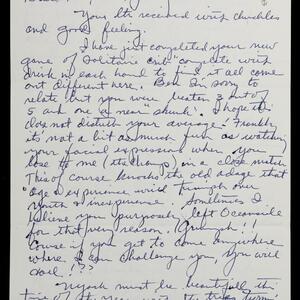 Your ltr received with chuckles
and good feeling.
I have just completed your new
game of Solitaire crib complete with
drink n each hand to find it all come
out different here. Ben Im sorry to
relate but you were beaten 3 out of
5 and on a near skunk. I hope this
does not disturb your average. Frankly
its not a bit as much fun as watching
your facial expression when you
lose to me (the champ) in a close match
This of course knocks the old adage that
"age & experience will triumph over
youth & inexperience. Sometimes I
believe you purposely left Oceanside
for that very reason. Grumph!!
Cause if you get to come anywhere
where I can challenge you you will
!??
must be beautiful this
time of the year with the trees turnin